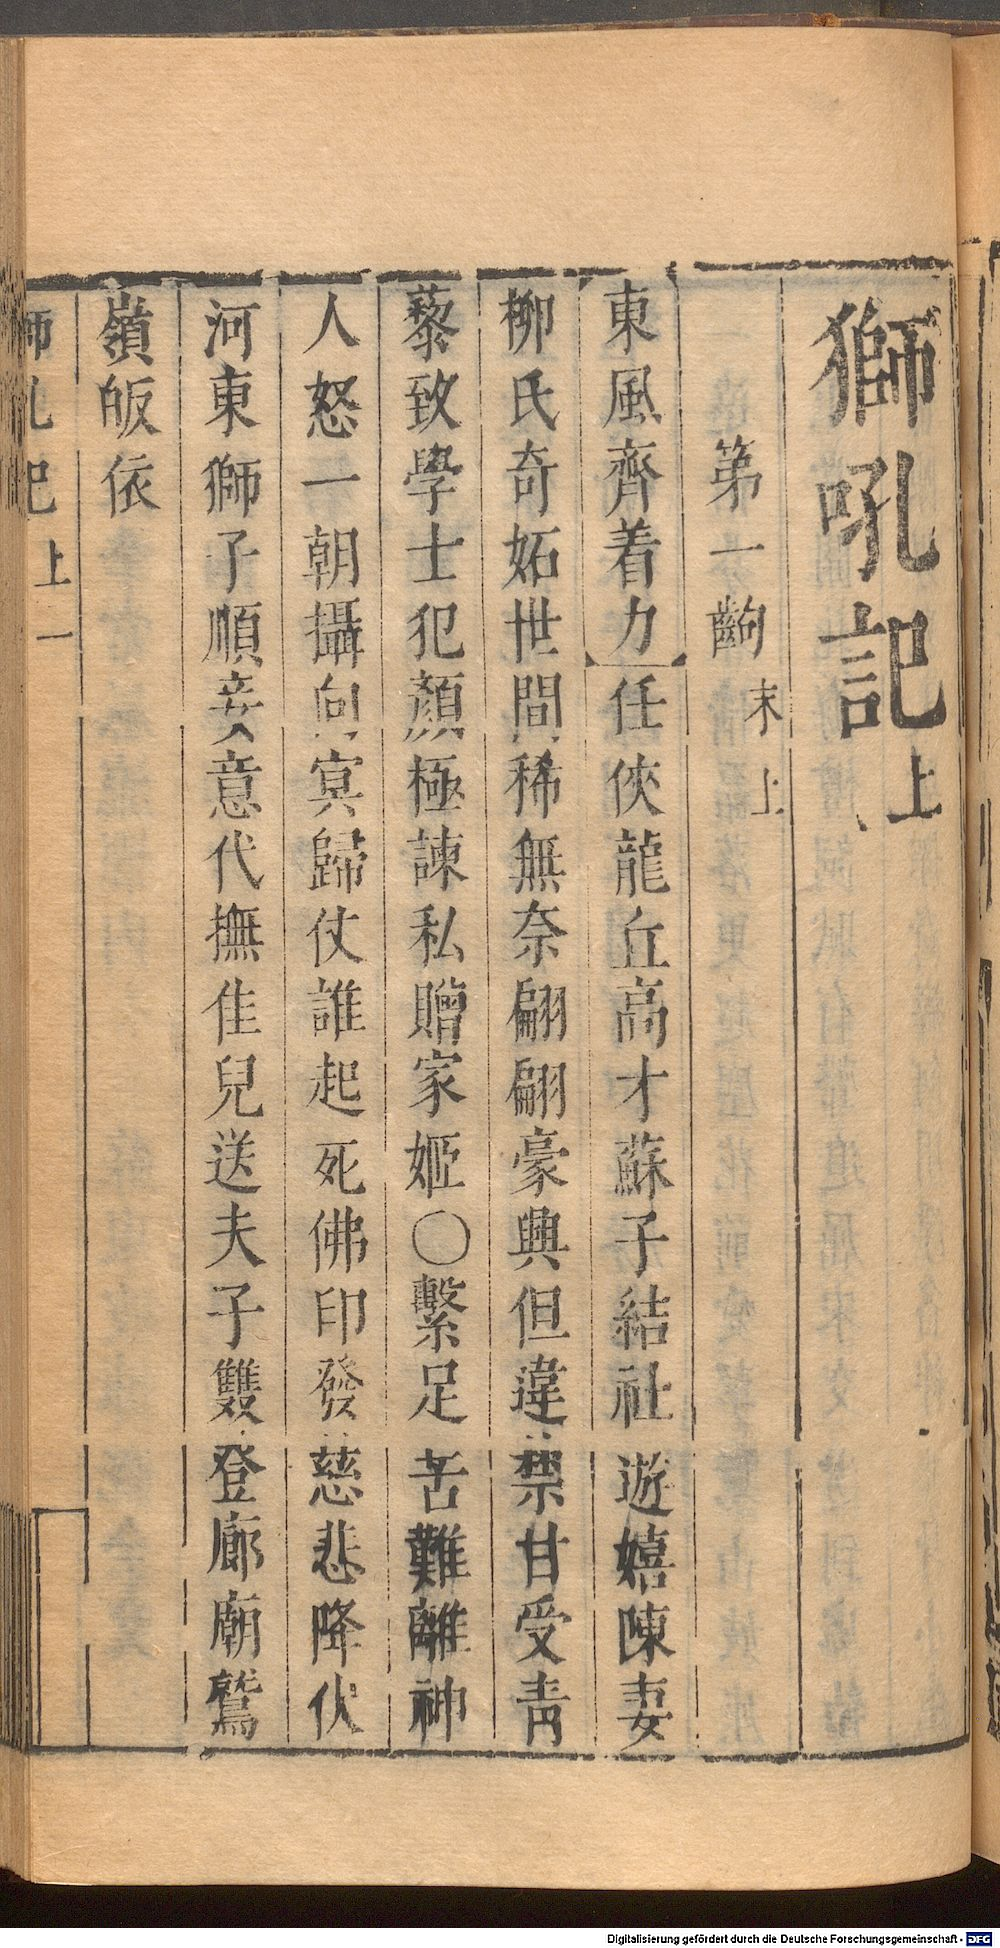 獅吼記上
第一齣 末上
東風齊着力 任俠龍丘高才蘇子結社遊嬉陳妻
柳氏奇妬世間稀無奈翩翩豪興但違禁甘受青
藜致學士犯顏極諫私贈家姬〇繫足苦難離神
人怒一朝攝向冥歸仗誰起死佛印發慈悲降伏
河東獅子順妾意代撫佳兒送夫子雙登廊廟鷲
嶺皈依
師吼記上 一
Digitalisierung gefördert durch die Deutsche Forschungsgemeinschaft - DFG